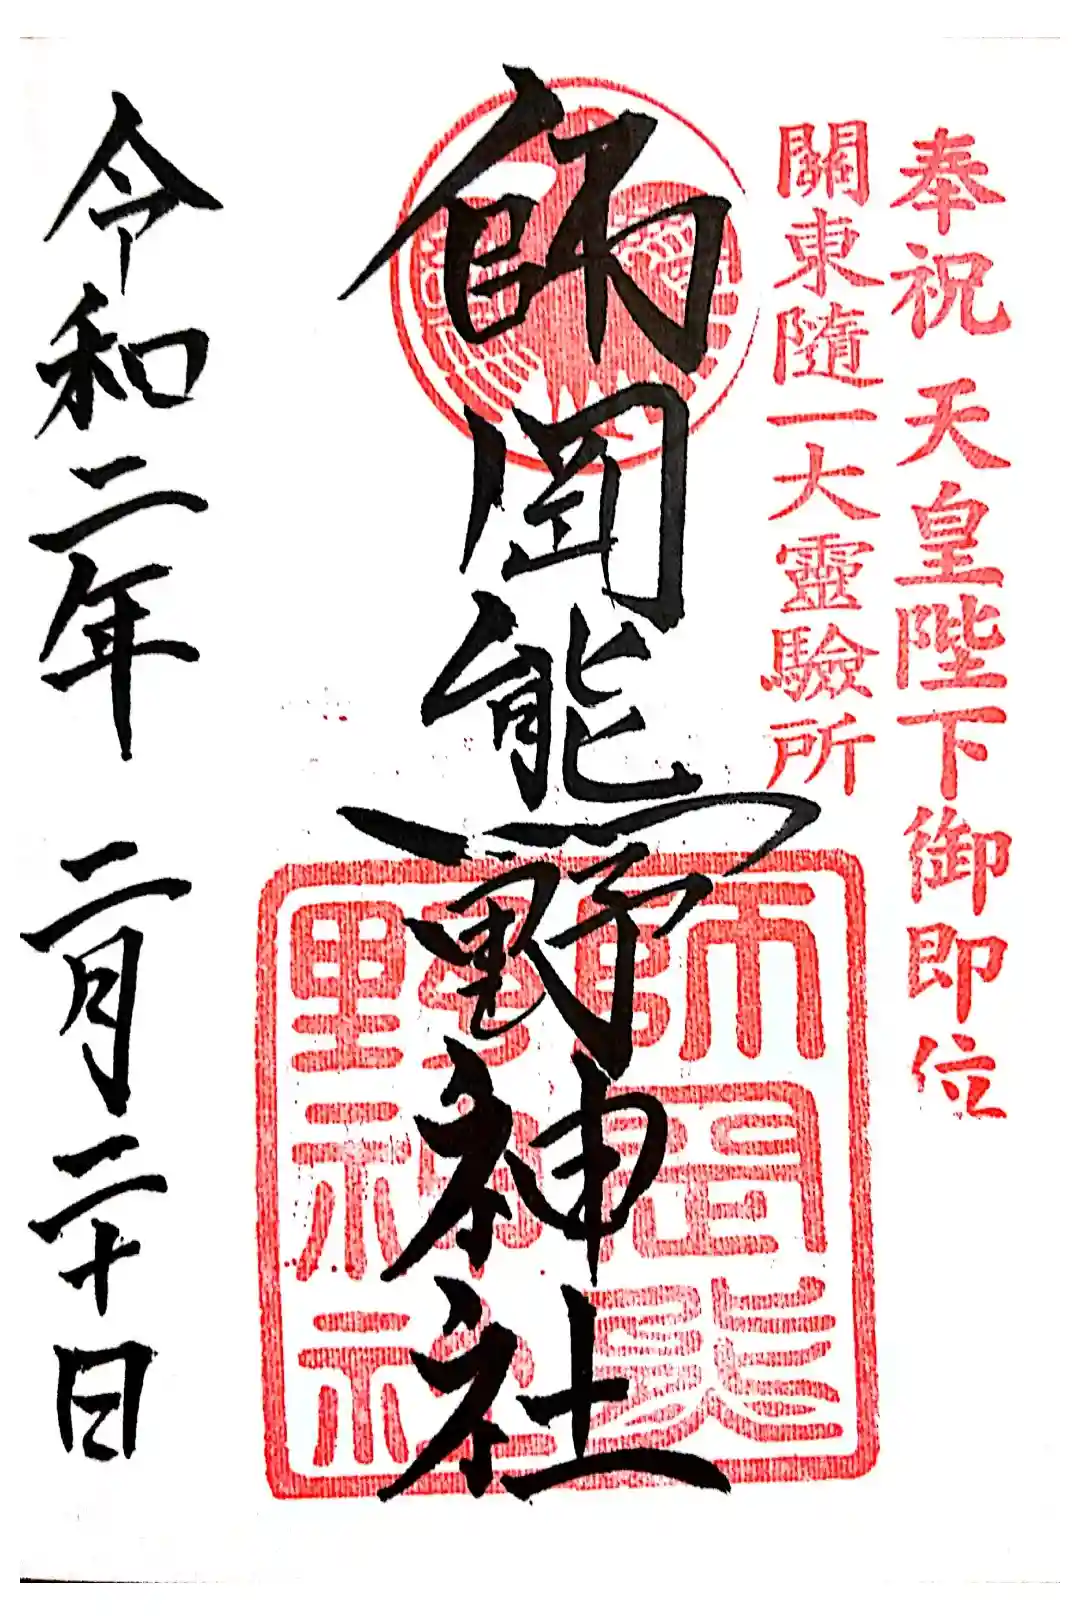 奉祝 天皇陛下御即位
關東隨一大靈驗所
師岡熊野神社
師岡熊野神社
令和二年 二月二十日